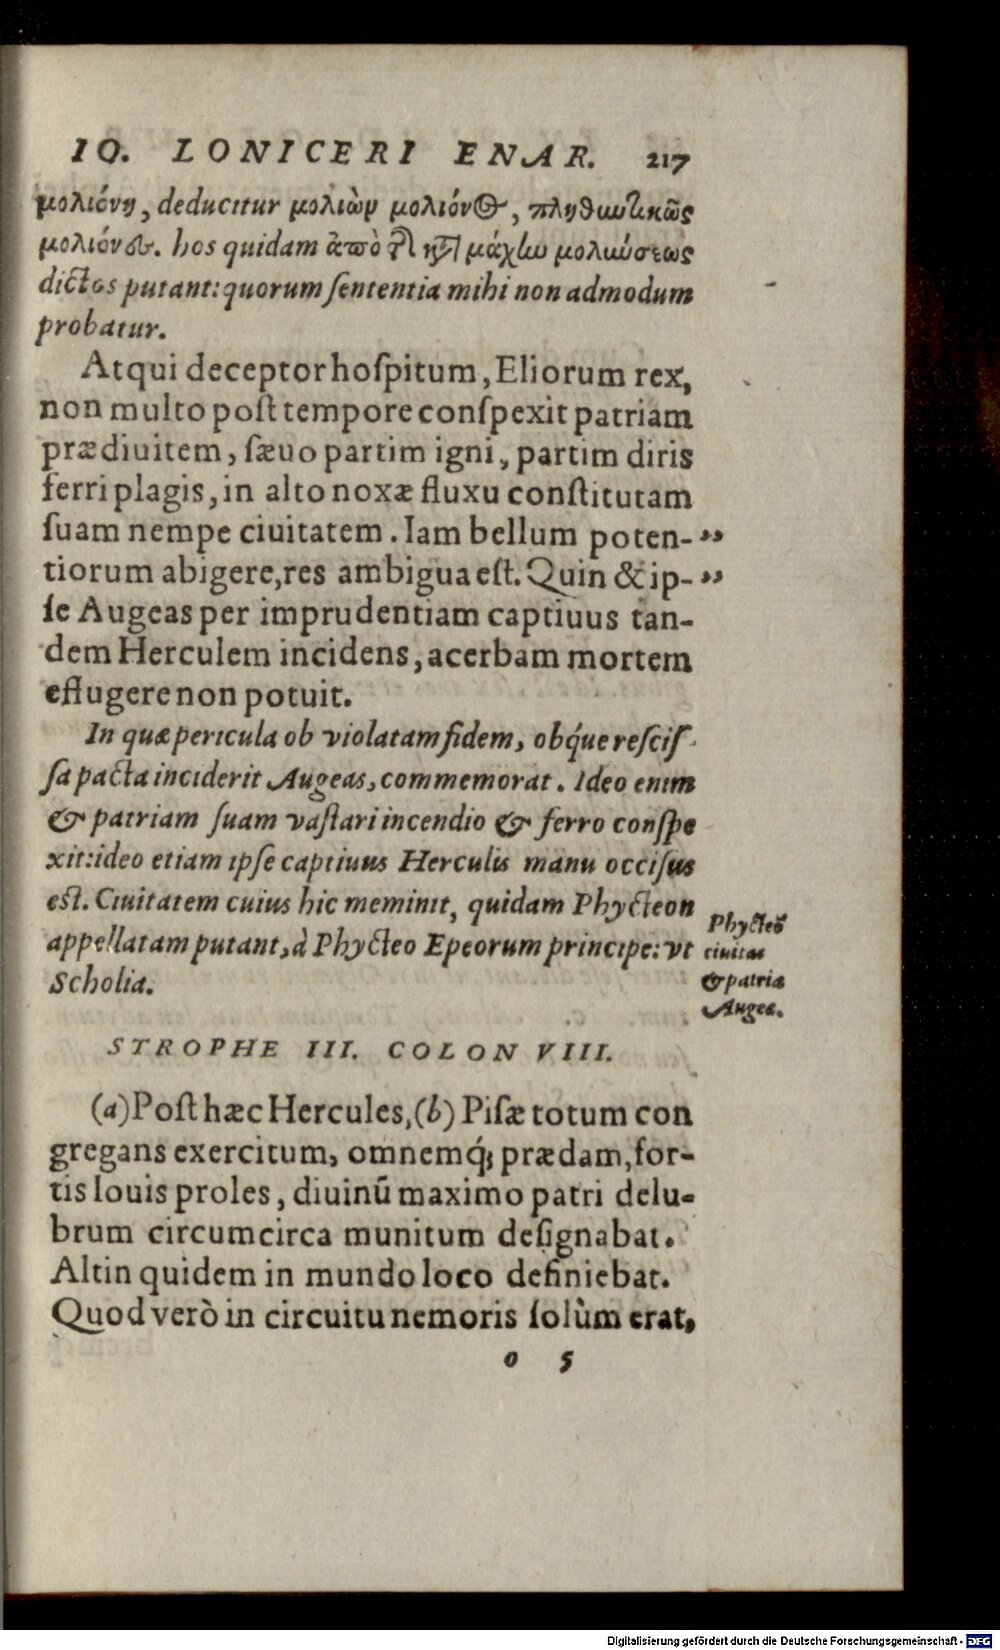 IO. LONICERI ENAR. 217
μολιόνη, deducitur μολιὼν μολιόνος, πληθυντικῶς
μολιόνες. hos quidam ἀπὸ μάχῃ μολιύσεως
dictos putant: quorum ſententia mihi non admodum
probatur.
Atqui deceptor hoſpitum, Eliorum rex,
non multo poſt tempore conſpexit patriam
prædiuitem, ſæuo partim igni, partim diris
ferri plagis, in alto noxæ fluxu conſtitutam
ſuam nempe ciuitatem. Iam bellum poten- „
tiorum abigere, res ambigua eſt. Quin & ip- „
ſe Augeas per imprudentiam captiuus tan-
dem Herculem incidens, acerbam mortem
effugere non potuit.
In quæ pericula ob violatam fidem, obq́ue reſciſ-
ſa pacta inciderit Augeas, commemorat. Ideo enim
& patriam ſuam vaſtari incendio & ferro conſpe
xit: ideo etiam ipſe captiuus Herculis manu occiſus
eſt. Ciuitatem cuius hic meminit, quidam Phycteon
appellatam putant, à Phycteo Epeorum principe: vt
Scholia.
Phycteō
ciuitas
& patria
Augeæ.
STROPHE III. COLON VIII.
(a) Poſt hæc Hercules, (b) Piſæ totum con
gregans exercitum, omnemq́; prædam, for-
tis Iouis proles, diuinū maximo patri delu-
brum circumcirca munitum deſignabat.
Altin quidem in mundo loco definiebat.
Quod verò in circuitu nemoris ſolùm erat,
o 5
Digitalisierung gefördert durch die Deutsche Forschungsgemeinschaft - DFG